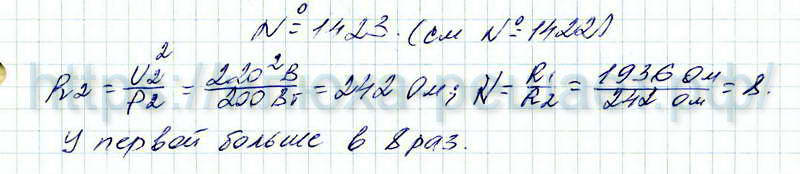 № 1423. (см № 1422)
R2 = U2²/P2 = 220² В/200 Вт = 242 Ом; N = R1/R2 = 1936 Ом/242 Ом = 8.
У первой больше в 8 раз.